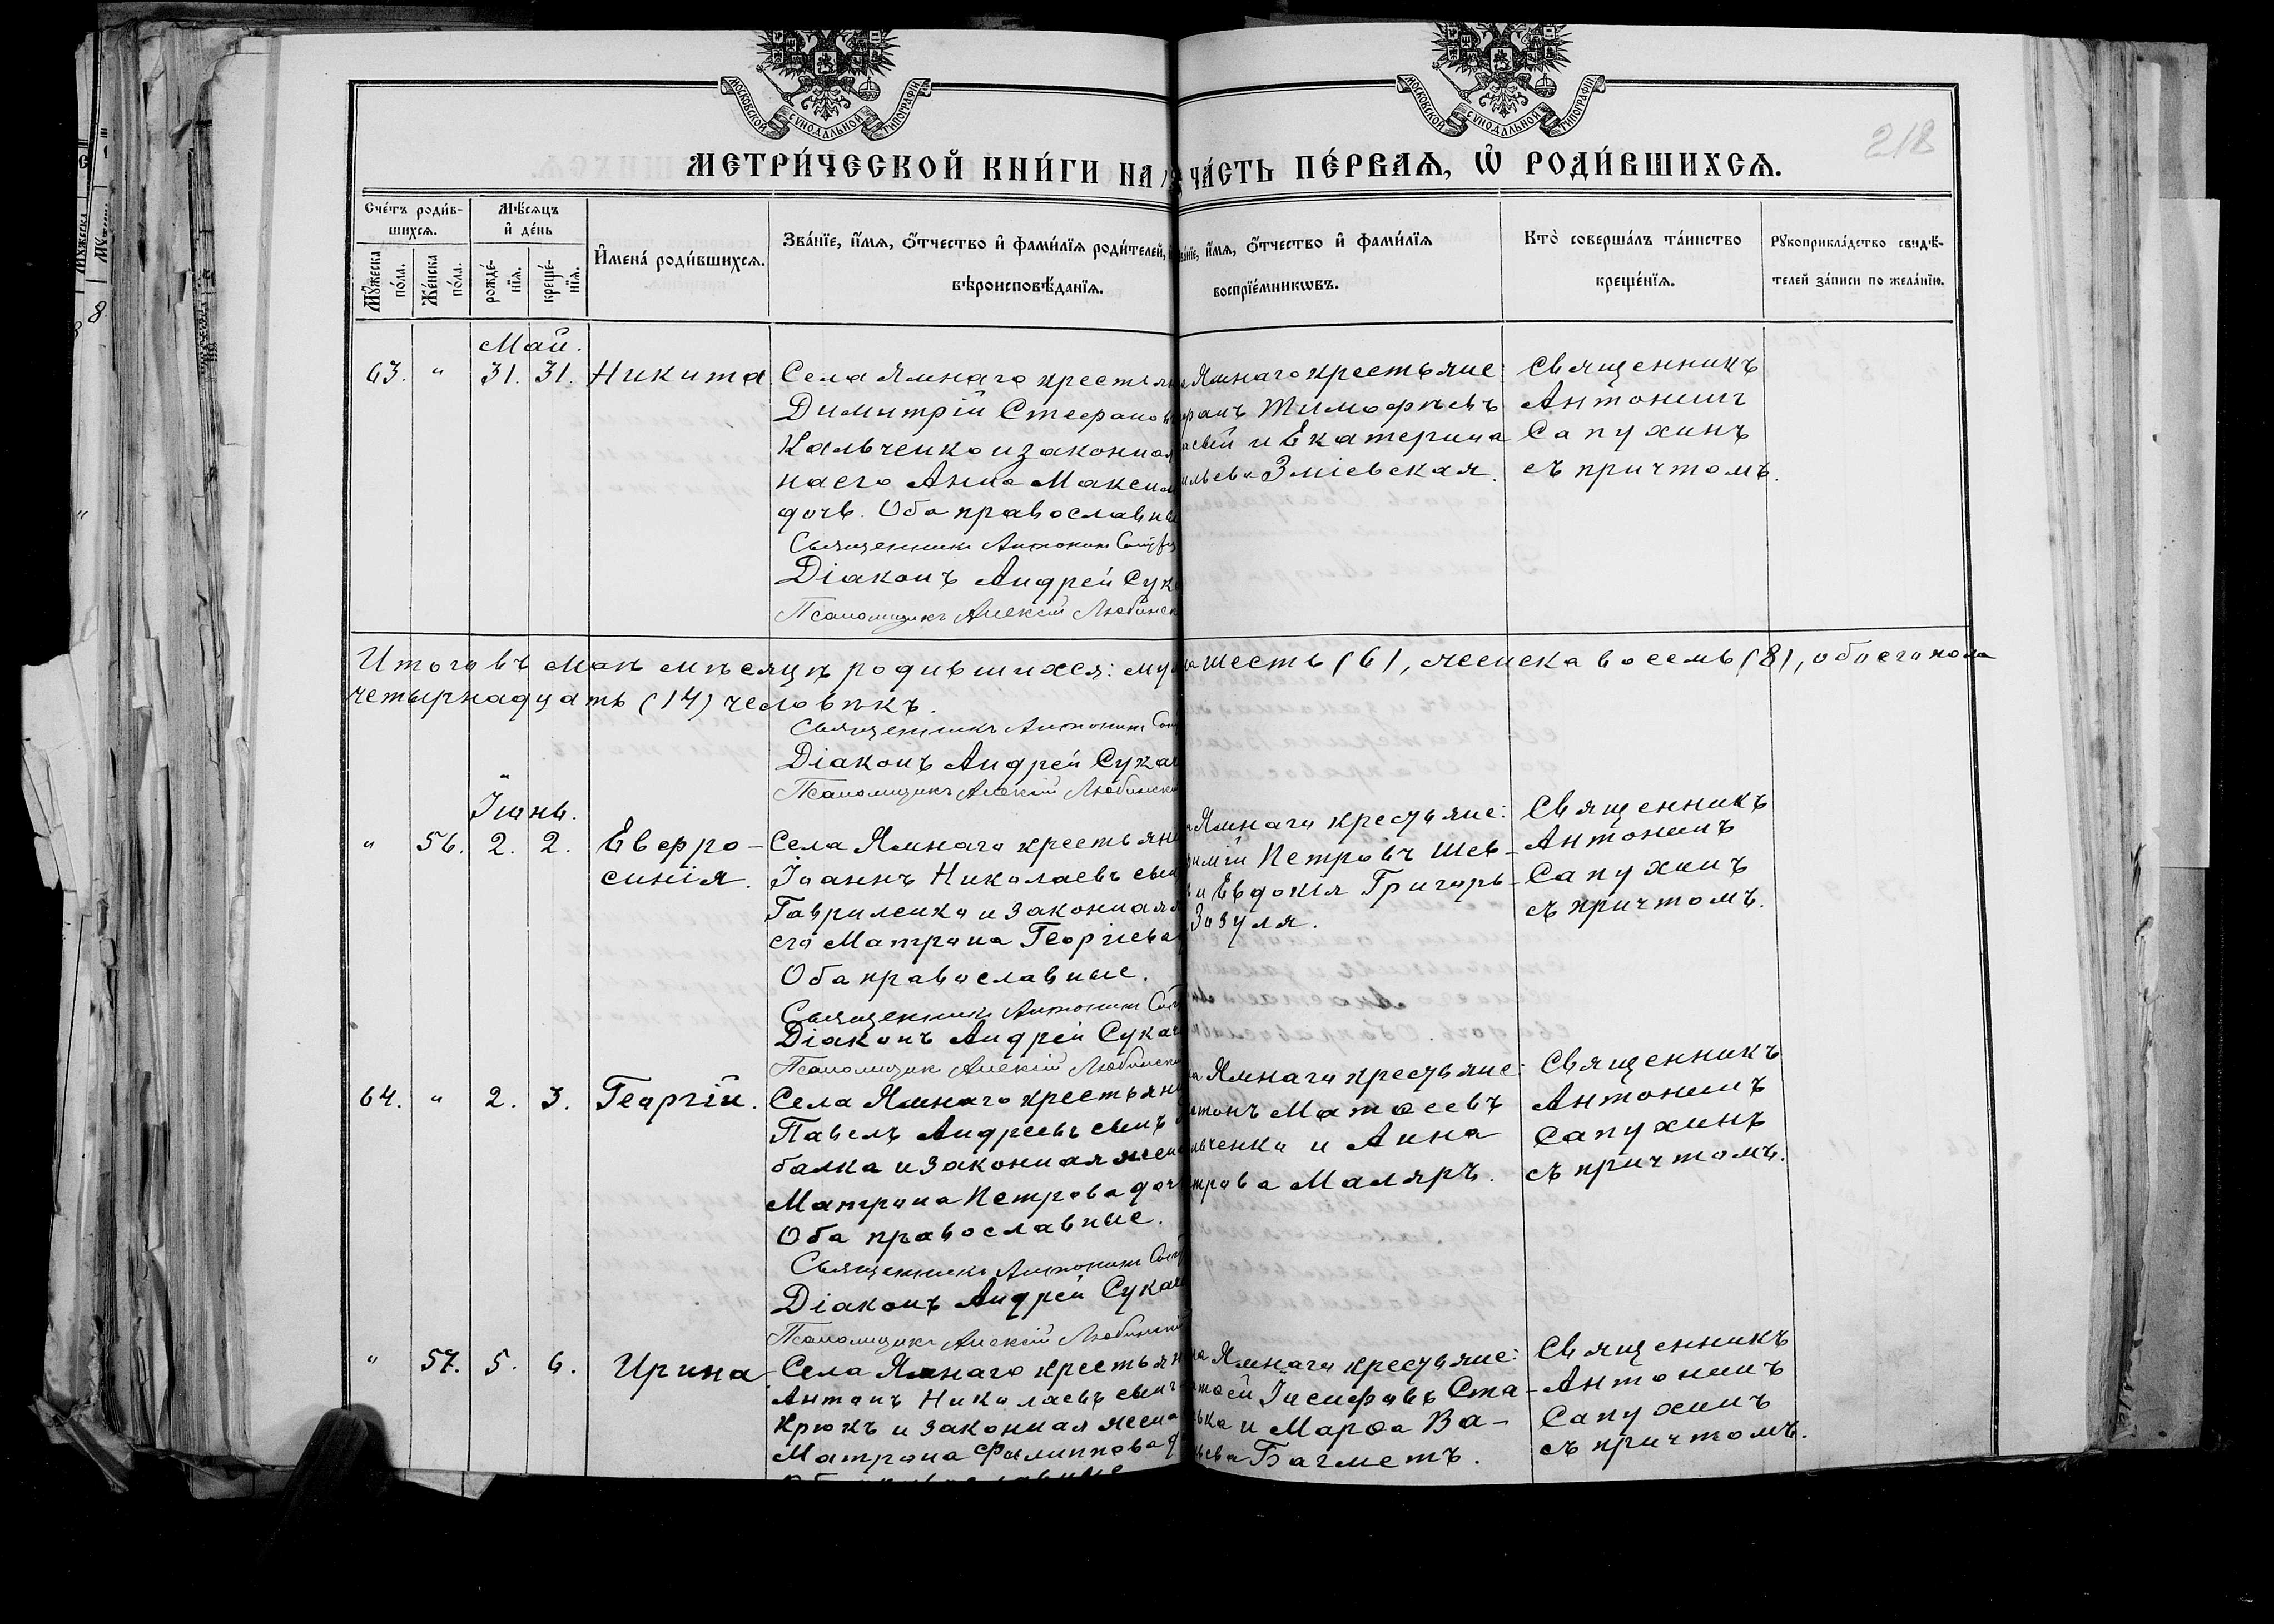 МОСКОВСКОЙ СѴНОДАЛЬНОЙ ТИПОГРАФІИ
МОСКОВСКОЙ СѴНОДАЛЬНОЙ ТИПОГРАФІИ
218
МЕТРИ́ЧЕСКОЙ КНИ́ГИ НА
ЧА́СТЬ ПЕ́РВАѦ, Ѡ҆ РОДИ́ВШИХСѦ.
Сче́тъ роди́в-
шихсѧ.
Мѣ́сѧцъ
и҆ де́нь
Мꙋ́жеска
по́ла.
Же́нска
по́ла.
рожде́-
нїѧ.
креще́-
нїѧ.
И҆мена̀ роди́вшихсѧ.
Зва́нїе, и҆́мѧ, ѻ҆́тчество и҆ фами́лїѧ роди́телей,
вѣроисповѣ́данїѧ.
и҆́мѧ, ѻ҆́тчество и҆ фами́лїѧ
воспрїе́мникѡвъ.
Кто̀ соверша́лъ та́инство
креще́нїѧ.
Рꙋкоприкла́дство свидѣ́-
телей за́писи по жела́нїю.
Май.
63. " 31. 31. Никита
Села Ямнаго крестьян
Димитрій Стефанов
Кальченко и законная
на его Анна Максим
дочь. Оба православны
Священникъ Антонинъ
Діаконъ Андрей Сук
Псаломщикъ Алексій Любинск
Ямнаго крестьяне
фанъ Тимофѣевъ
и Екатерина
ильева Зміевская.
Священникъ
Антонинъ
Сапухинъ
съ причтомъ.
Итого въ маѣ мѣсяцѣ родившихся: му шесть (6), женска восемь (8), обоего пола
четырнадцать (14) человѣкъ.
Священникъ Антонинъ
Діаконъ Андрей Сукач
Псаломщикъ Алексій Любинскій
Іюнь.
" 56. 2. 2. Евфро-
синія.
Села Ямнаго крестьяни
Іоаннъ Николаевъ сын
Гавриленко и законная
его Матрона Георгіева
Оба православные.
Священникъ Антонинъ
Діаконъ Андрей Сукач
Псаломщикъ Алексій Любинскій
Ямнаго крестьяне:
Петровъ Шев-
и Евдокія Григорь-
Зозуля.
Священникъ
Антонинъ
Сапухинъ
съ причтомъ.
64. " 2. 3. Георгій.
Села Ямнаго крестьяни
Павелъ Андреевъ сынъ
балка и законная жена
Матрона Петрова доч
Оба православные.
Священникъ Антонинъ
Діаконъ Андрей Сукач
Псаломщикъ Алексій Любинскій
Ямнаго крестьяне:
Матѳеевъ
ченко и Анна
трова Маляръ.
Священникъ
Антонинъ
Сапухинъ
съ причтомъ.
" 57. 5. 6. Ирина
Села Ямнаго крестьян
Антонъ Николаевъ сынъ
Крюкъ и законная жена
Матрона Филиппова д
Ямнаго крестьяне:
Іосифовъ Ста-
и Марѳа Ва-
Багметъ.
Священникъ
Антонинъ
Сапухинъ
съ причтомъ.